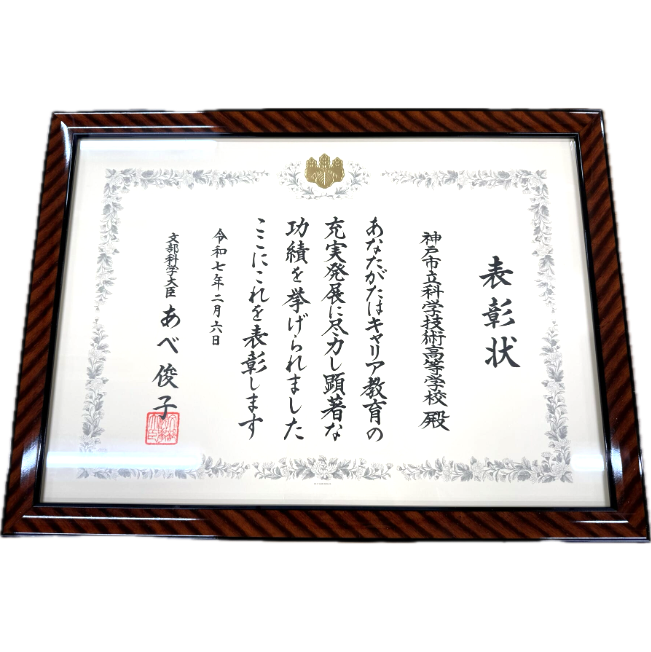 表彰状
神戸市立科学技術高等学校 殿
あなたがたはキャリア教育の
充実発展に尽力し顕著な
功績を挙げられました
ここにこれを表彰します
令和七年二月六日
文部科学大臣 あべ俊子